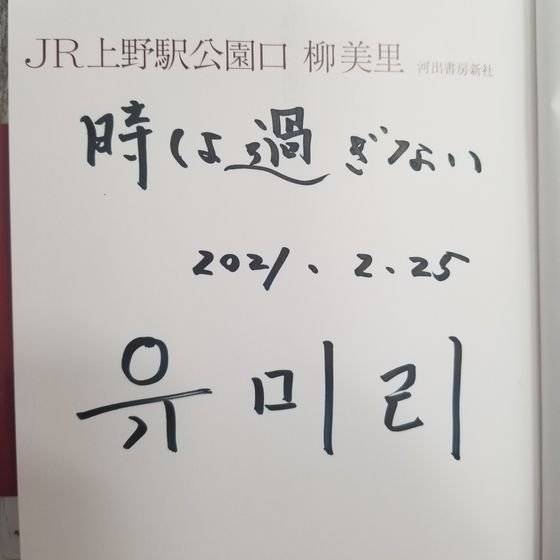 JR上野駅公園口 柳美里 河出書房新社
時は過ぎない
2021.2.25
유미리